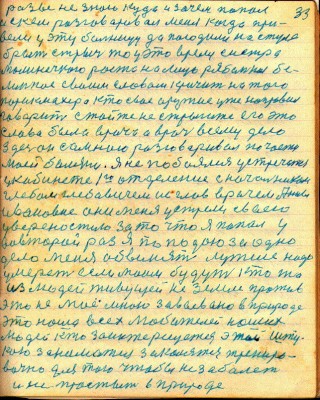 разве не знаю куда и зачем попал
и с кем разговаривал меня когда при-
вели у эту больницу да посадили на стуле
брать стрич то у это время сестра
маленького роста на лицо рябинки бе-
своим словом кричит на того
парикмахера кто своё оружие уже
говорит стойте не стригите его это
слова была врач а врач всему дело
здесь он со мною разговаривал по части
моей болезни. Я не побоялся устретится
у кабинете 1го отделение с начальником
Глебом глебавичем и глав врачем Анной
Ивановне они меня устрели своею
увереностию за то что я попал у
вовторой раз я по подою за одно
дело меня обвинят лутше надо
умереть если такии будут кто то
из людей живущей на земле против
это не моё мною завоёвано в природе
это наша всех любителей наших
людей кто заинтересуется этой шту-
кою заниматся закалятся трениро-
вачно для того чтобы не заболеть
и не простыть в природе
33